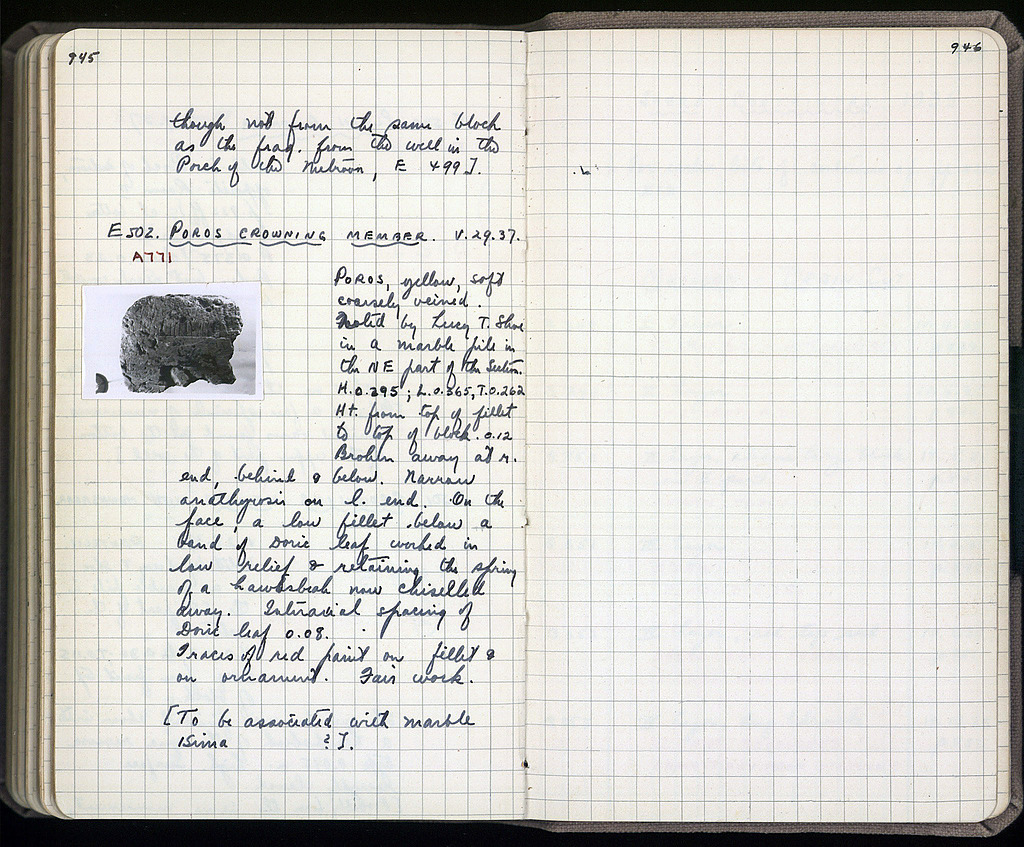 945
though not from the same block
as the frag. from the well in the
Porch of the Metroon, E 499].
E502. POROS CROWNING MEMBER. V.29.37.
A771
POROS, yellow, soft
coarsely veined.
Noted by Lucy T. Shoe
in a marble pile in
the NE part of the Section.
H.0.295; L.0.365, T.0.262
Ht. from top of fillet
to top of block. 0.12
Broken away at r.
end, behind & below. Narrow
anathyrosis on l. end. On the
face, a low fillet below a
band of Doric leaf worked in
low relief & retaining the spring
of a hawksbeak now chiselled
away. Interaxial spacing of
Doric leaf 0.08.
Traces of red paint on fillet &
on ornament. Fair work.
[To be associated with marble
sima ?].
946